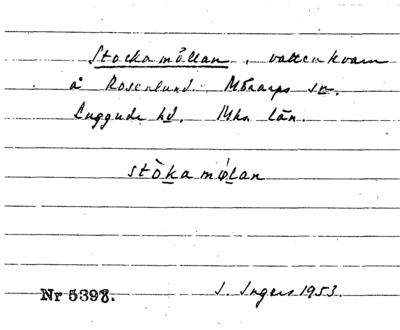 Stockamöllan, vattenkvarn
å Rosenlund. Mörarps sn.
Luggude hd. Mhs län.
stòkamǿlan
Nr 5398. I. Ingers 1953.